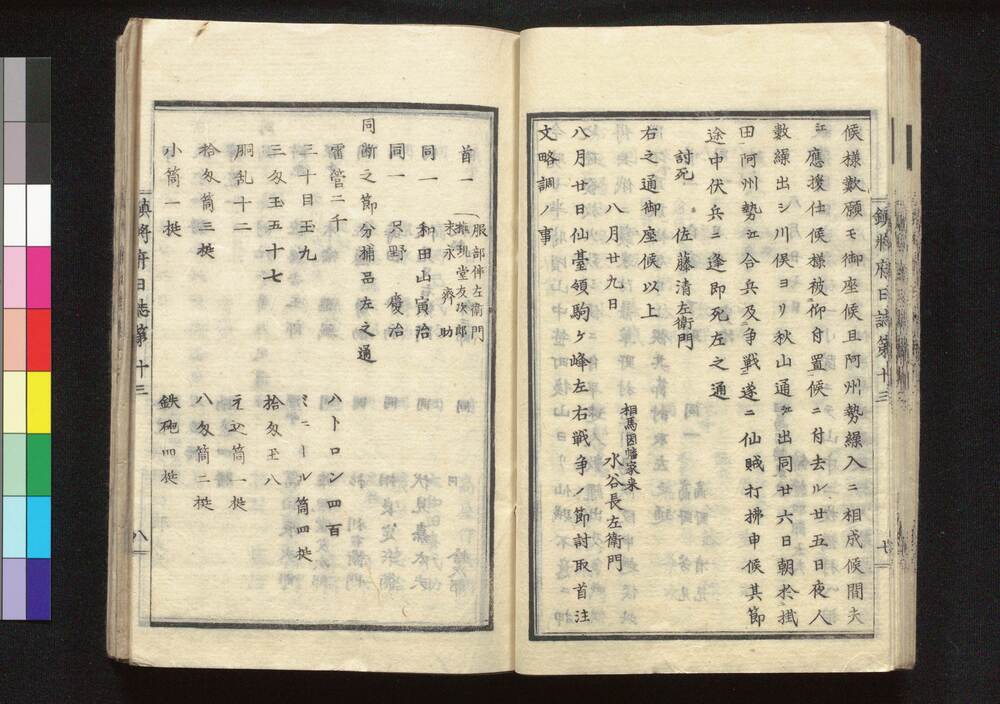 鎮将府日誌第十三
七
候様歎願モ御座候且阿州勢繰入ニ相成候間夫
江應援仕候様被仰付置候ニ付去ル廿五日夜人
數繰出シ川俣ヨリ秋山通ケ出同廿六日朝於掛
田阿州勢江合兵及争戰遂ニ仙賊打拂申候其節
途中伏兵ニ逢即死左之通
討死 佐藤清左衛門
右之通御座候以上
八月廿九日
相馬因幡家来
水谷長左衛門
八月廿日仙臺領駒ケ峰左右戰争ノ節討取首注
文略調ノ事
首一
服部伴左衛門
堂友次郎
末永齊助
同一 和田山寅治
同一 只野慶治
同断之節分捕品左之通
雷管二千 ハトロン四百
三十目玉九 ミニール筒四挺
三匁玉五十七 拾匁玉八
胴乱十二 元込筒一挺
拾匁筒三挺 八匁筒二挺
小筒一挺 鉄砲四挺
鎮将府日誌第十三
八